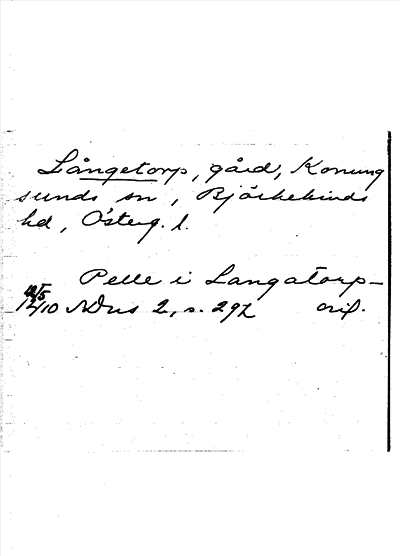 Långetorp, gård, Konung
sunds sn, Björkekinds
hd, Österg. l.
Pelle i Langatorp—
12/5
1410 NDns 2, s. 292 orig.